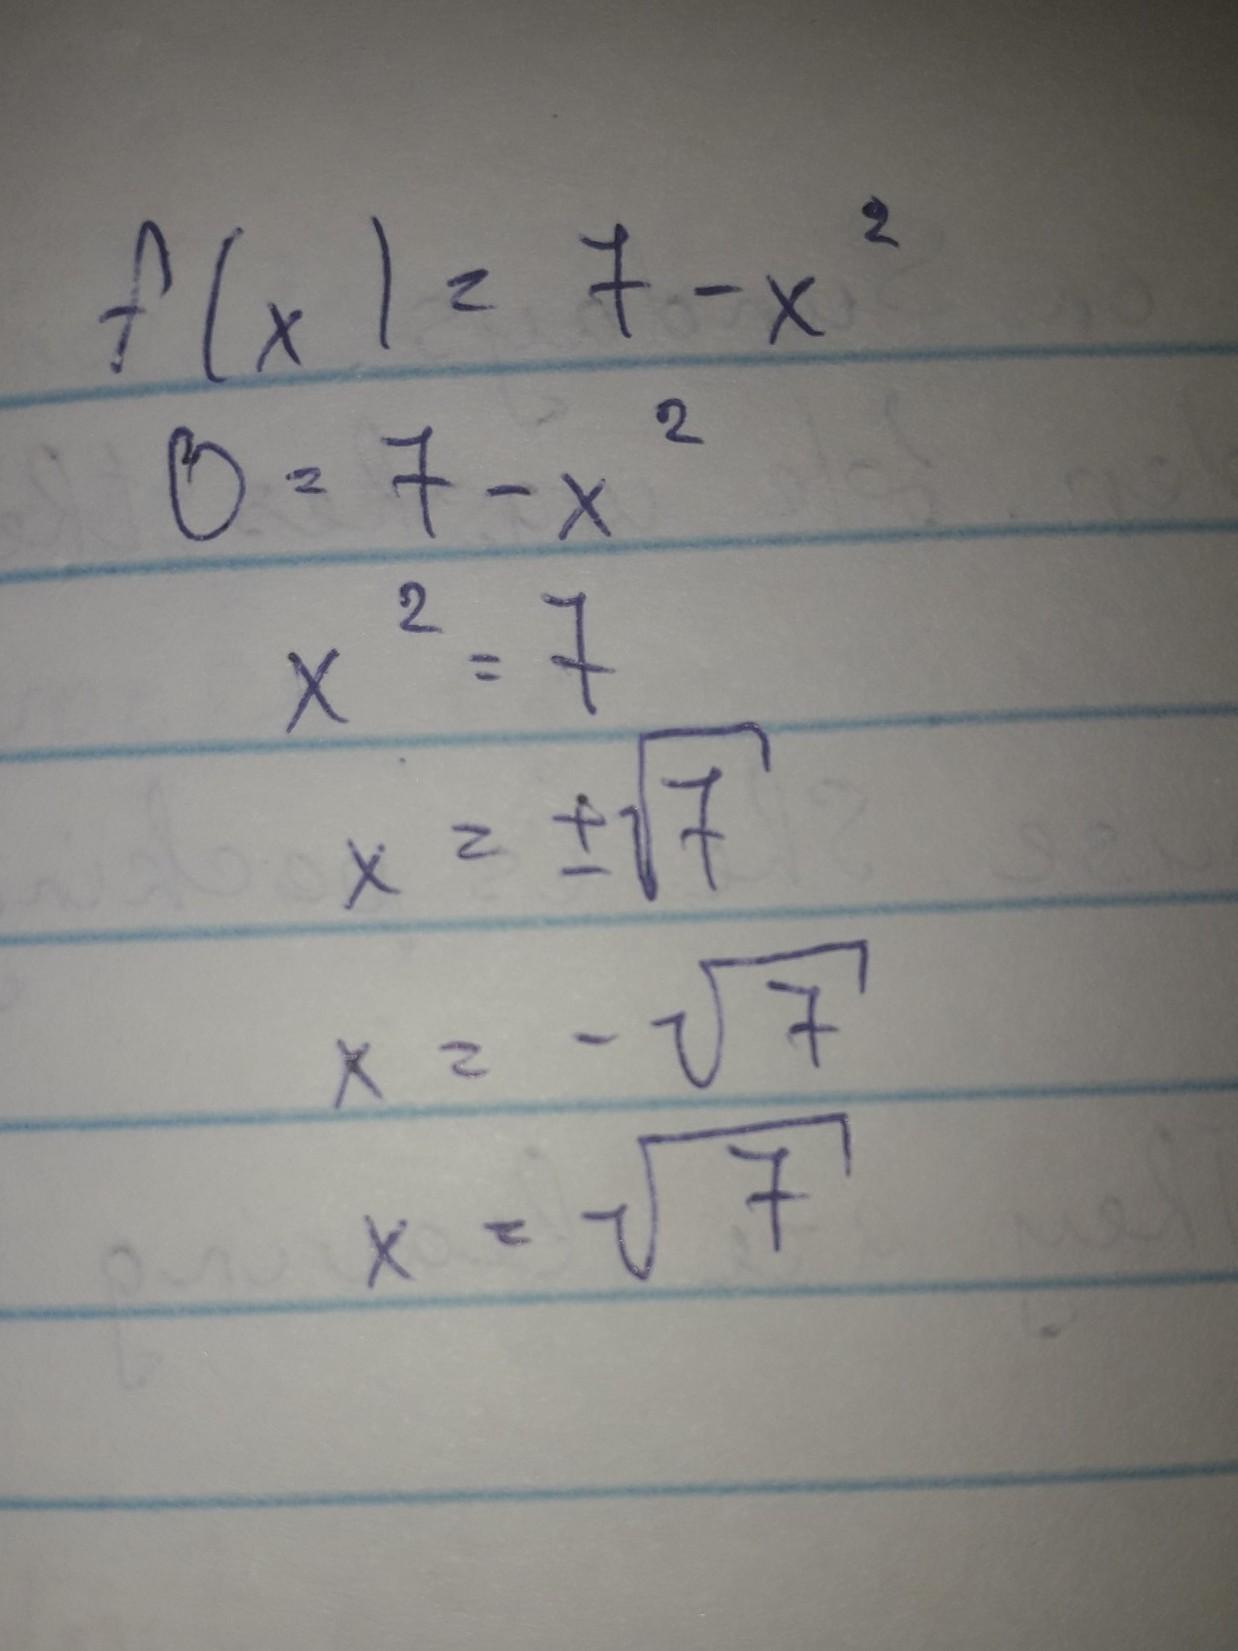 f(x) = 7 - x²
0 = 7 - x²
x² = 7
x = ±√7
x = -√7
x = √7